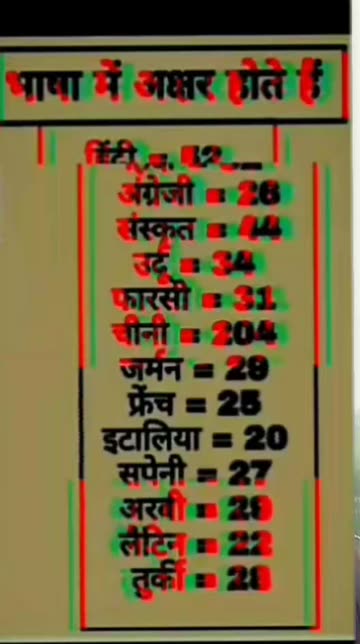 भाषा में अक्षर होते हैं
हिंदी = 52
अंग्रेजी = 26
संस्कत = 44
उर्दू = 34
फारसी = 31
चीनी = 204
जर्मन = 29
फ्रेंच = 25
इटालिया = 20
सपेनी = 27
अरबी = 28
लैटिन = 22
तुर्की = 28